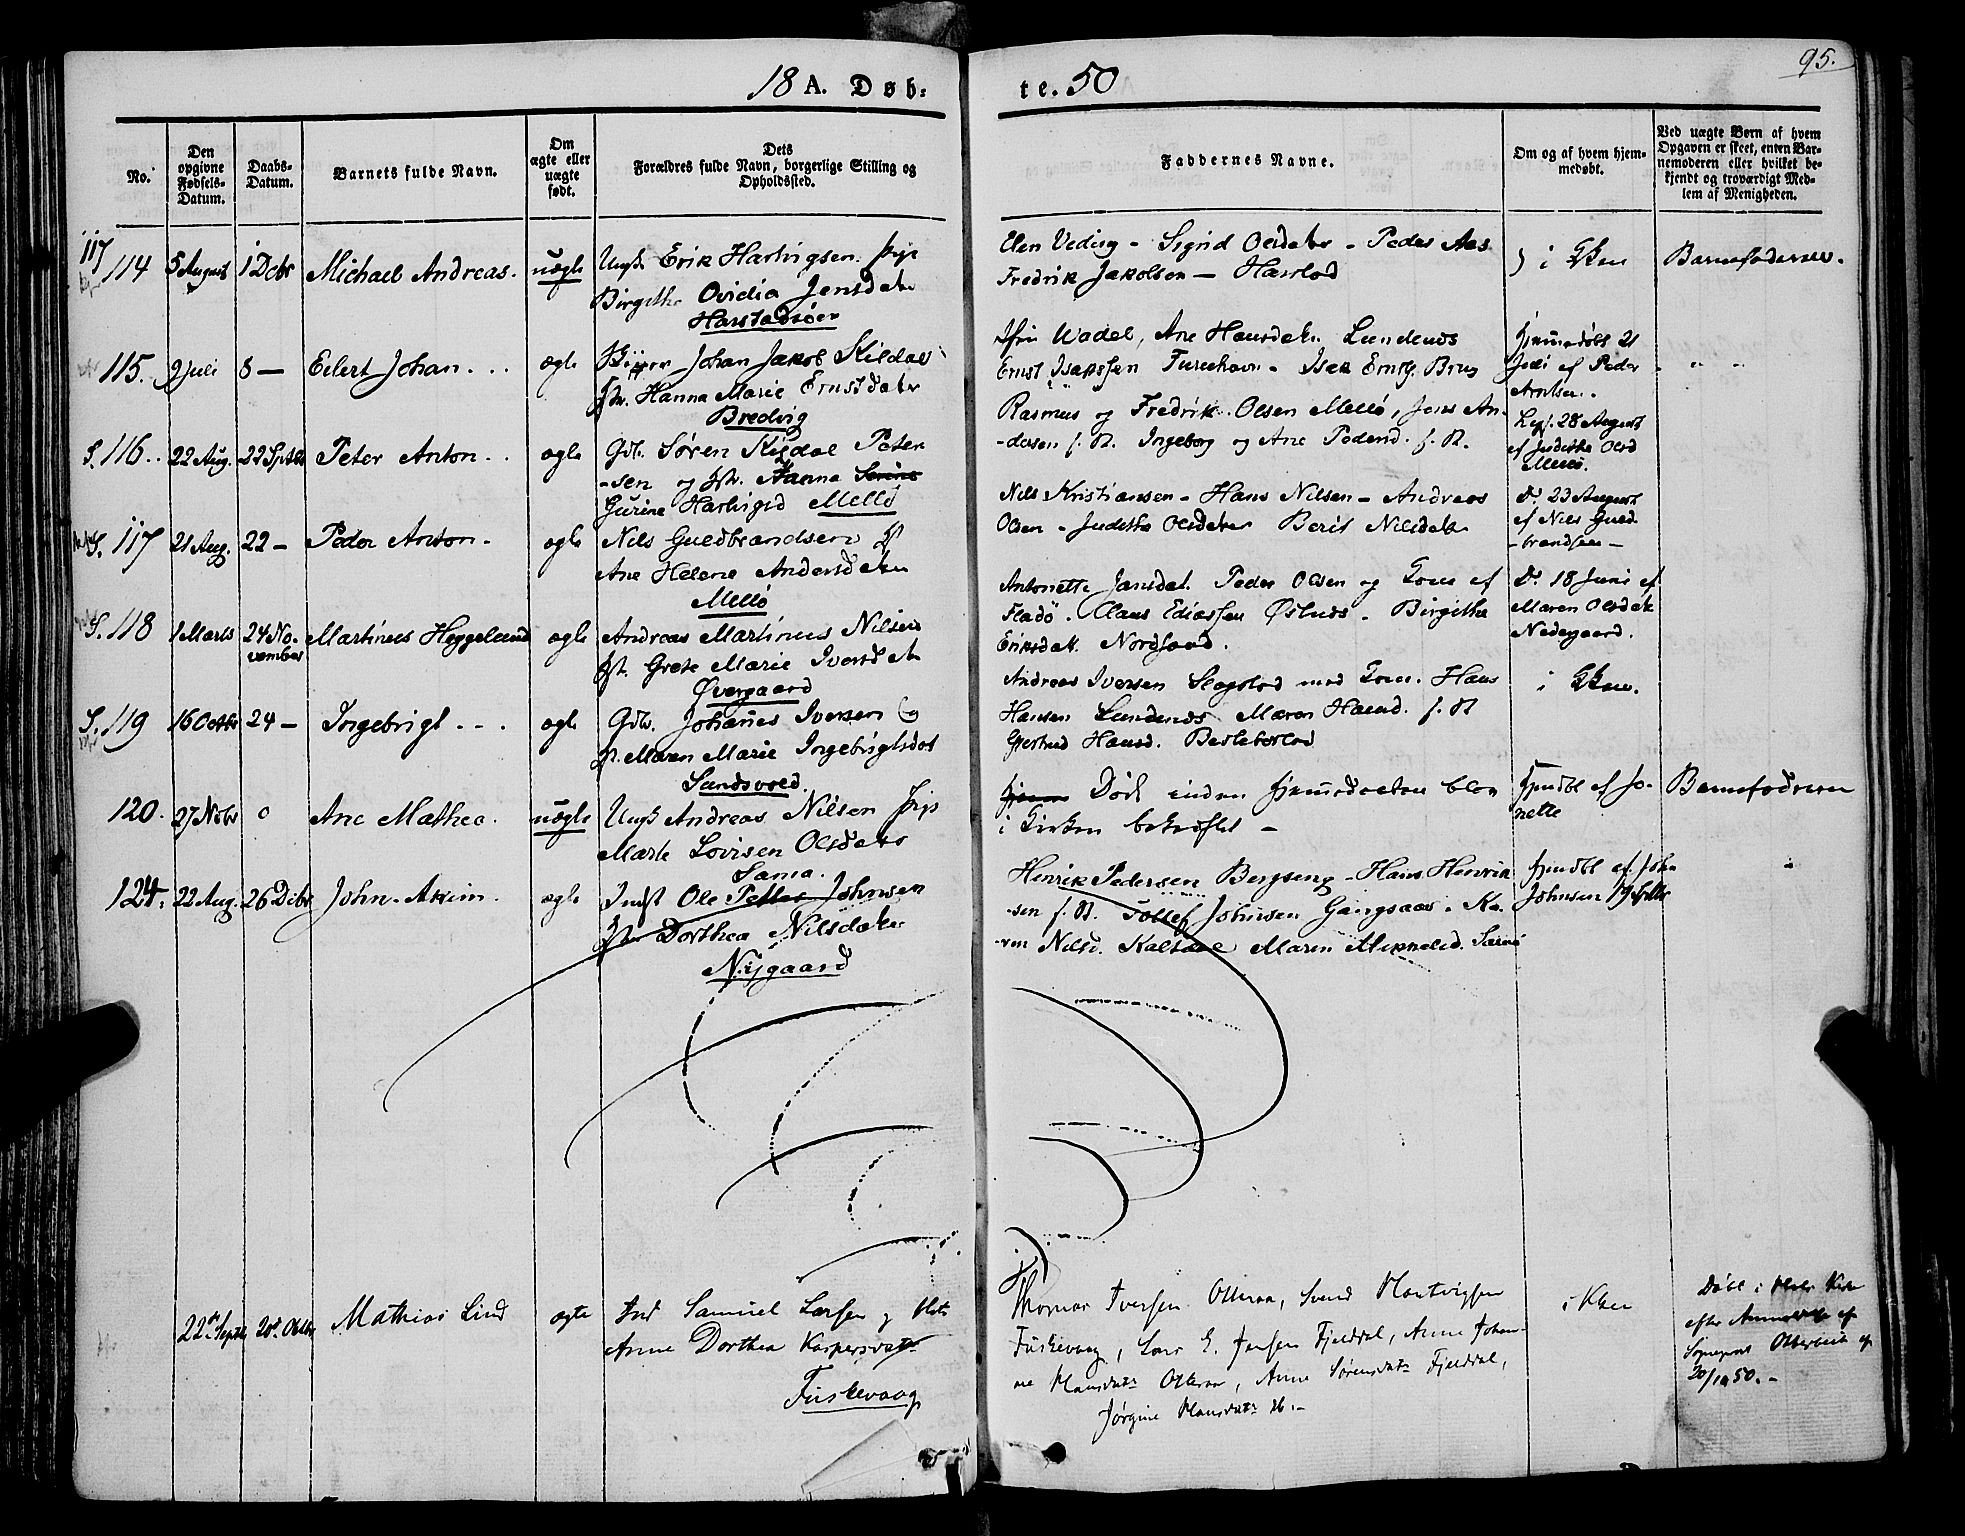 95.
18 A. Døb:
te. 50
No.
Den opgivne Fødsels-Datum.
Daabs-Datum.
Barnets fulde Navn.
Om ægte eller uægte født.
Dets Forældres fulde Navn, borgerlige Stilling og Opholdssted.
Faddernes Navne.
Om og af hvem hjemmedøbt.
Ved uægte Børn af hvem Opgaven er skeet, enten Barnemoderen eller hvilket bekjendt og troværdigt Medlem af Menigheden.
117
114
5 August
1 Debr
Michael Andreas.
uægte
Ungk. Erik Hartvigsen
Birgithe Ovidia Jensdater
Harstadsøen
Fredrik Jakobsen — Harstad
i Kken
Barnefaderen.
115.
9 Juli
8 —
Eilert Johan . . .
ægte
Johan Jakob Kildal
Hanna Marie Ernstdater
Bredvig
Wadel, Ane Hansdater Lundenes
Ernst Isaksen
Hjemmedøbt 21
Juli af Peder
Arntsen.
S. 116. .
22 Aug.
22 Sptbr
Peter Anton . .
ægte
Søren Kildal Peter
-sen og Hanna
Gurine Hartvigsd Mellø
Rasmus og Fredrik Olsen Mellø, Jens An-
-dersen f. St. Ingeborg og Ane Pedersd. f. St.
28 August
af Judithe Olsd
Mellø.
S. 117
21 Aug.
22 —
Peder Anton -
ægte
Nils Guldbrandsen
Ane Helene Andersdater
Mellø
Nils Kristiansen - Hans Nilsen - Andreas
Olsen - Judithe Olsdater Berit Nilsdater
Do. 23 August
af Nils Guld-
-brandsen -
S. 118
1 Marts
24 No-
vember
Martinus Heggelund
ægte
Andreas Martinus Nilsen
Grete Marie Iversdater
Øvergaard
Antonette Jansdat. Peder Olsen og Kone af
Birgithe
Eriksdatt. Nordsand.
Do. 18 Juni af
Maren Olsdatr
Nedegaard.
S. 119
16 Octbr
24 —
Ingebrigt . . .
ægte
Johanes Iversen
Maren Marie Ingebrigtsdat
Sandsvold.
Andreas Iversen Slagstad med Kone. Hans
Hansen Lundenes Maren Hansd. f. St
Gjertrud Hansd.
i Kken.
120.
27 Nobr
0
Ane Mathea.
uægte
Ungk Andreas Nilsen
Marte Lovisen Olsdater
Sama.
Død inden Hjemmedaaben blev
i Kirken bekræftet —
Hjemdbt af Jo-
nette
Barnefaderen
124.
22 Aug.
26 Debr
John Arnim
ægte
Indst Ole Petter Johnsen
Dorthea Nilsdater
Nygaard
Henrik Pedersen Bergseng - Hans Henrik-
-sen f. St. Tollef Johnsen Gangsaas. Ka-
-ren Nilsd. Maren Mikkelsd.
Hjemdbt af John
Johnsen
22de Septbr
20de Octbr
Mathias Lind
ægte
Ind Samuel Larsen og
Anne Dorthea Kaspersdatr
Fuskevaag
Thomas Iversen Otteraa, Svend Hartvigsen
Fuskevaag, Lars E. Jensen Fjeldal, Anne Johan-
ne Hansdatr Otteraa, Anne Sørensdatr Fjeldal,
Jørgine Hansdatr ib. -
i Kken
Døbt i
efter af
Sogneprest
20/10 50. -